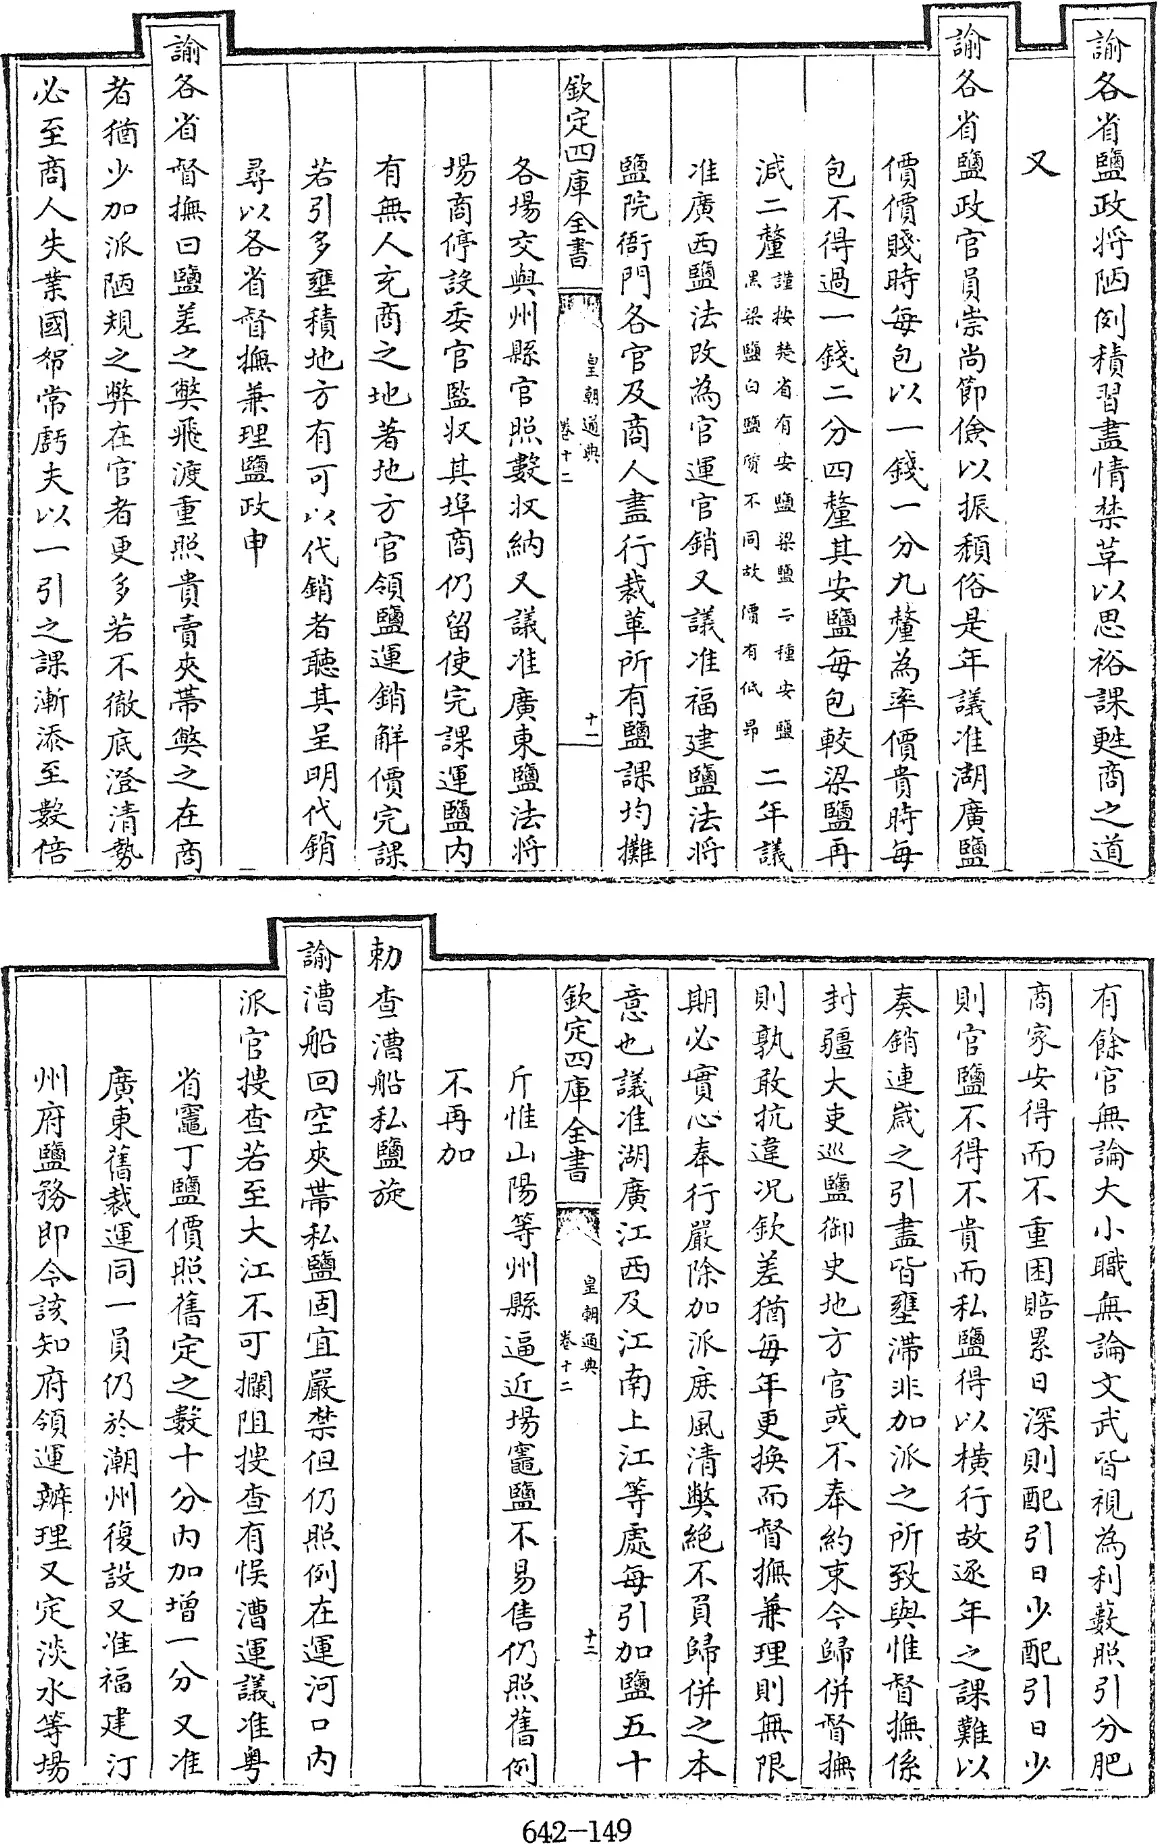 諭各省鹽政將陋例積習盡情禁革以思裕課甦商之道
又
諭各省鹽政官員崇尚節儉以振頹俗是年議准湖廣鹽
價價賤時每包以一錢一分九釐為率價貴時每
包不得過一錢二分四釐其安鹽每包較梁鹽再
減二釐謹按楚省有安鹽梁鹽二種安鹽黑梁鹽白鹽質不同故價有低昂二年議
准廣西鹽法改為官運官銷又議准福建鹽法將
鹽院衙門各官及商人盡行裁革所有鹽課均攤
欽定四庫全書 皇朝通典 卷十二 十一
各場交與州縣官照數收納又議准廣東鹽法將
場商停設委官監收其埠商仍留使完課運鹽内
有無人充商之地著地方官領鹽運銷解價完課
若引多壅積地方有可以代銷者聽其呈明代銷
尋以各省督撫兼理鹽政申
諭各省督撫曰鹽差之弊飛渡重照貴賣夾帶弊之在商
者猶少加派陋規之弊在官者更多若不徹底澄清勢
必至商人失業國帑常虧夫以一引之課漸添至數倍
有餘官無論大小職無論文武皆視為利藪照引分肥
商家安得而不重困賠累日深則配引日少配引日少
則官鹽不得不貴而私鹽得以橫行故逐年之課難以
奏銷連歲之引盡皆壅滯非加派之所致與惟督撫係
封疆大吏巡鹽御史地方官或不奉約束今歸併督撫
則孰敢抗違况欽差猶每年更換而督撫兼理則無限
期必實心奉行嚴除加派庶風清弊絶不負歸併之本
意也議准湖廣江西及江南上江等處每引加鹽五十
欽定四庫全書 皇朝通典 卷十二 十二
斤惟山陽等州縣逼近場竈鹽不易售仍照舊例
不再加
勅查漕船私鹽旋
諭漕船回空夾帶私鹽固宜嚴禁但仍照例在運河口内
派官搜查若至大江不可攔阻搜查有悞漕運議准粵
省竈丁鹽價照舊定之數十分内加增一分又准
廣東舊裁運同一員仍於潮州復設又准福建汀
州府鹽務即令該知府領運辦理又定淡水等場
642-149